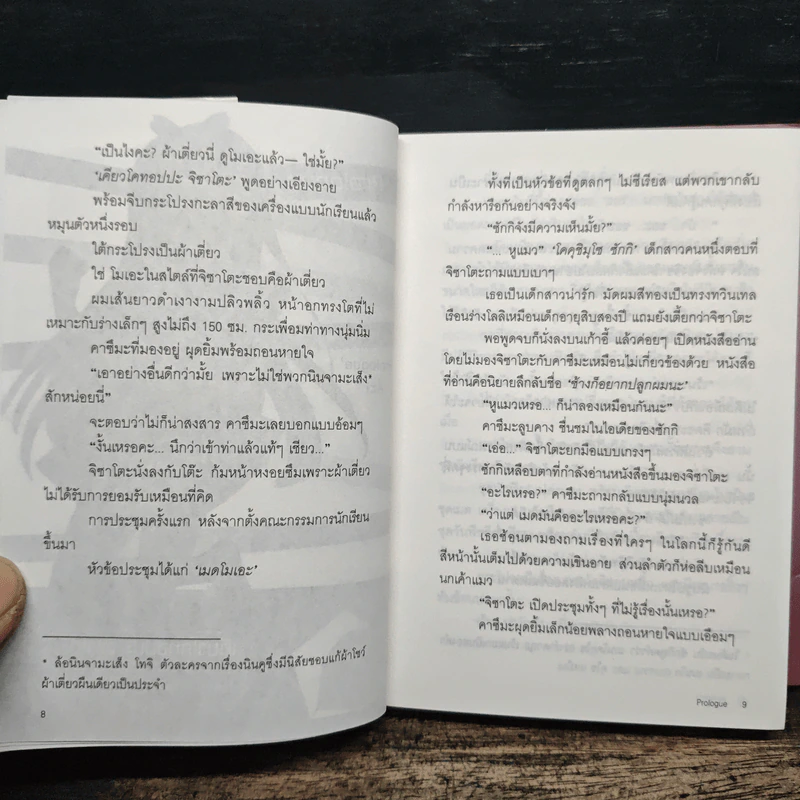 “เป็นไงคะ? ผ้าเตี่ยวนี่ ดูโมเอะแล้ว— ใช่มั้ย?”
‘เคียวโคทอปปะ จิซาโตะ’ พูดอย่างเอียงอาย
พร้อมจีบกระโปรงกะลาสีของเครื่องแบบนักเรียนแล้ว
หมุนตัวหนึ่งรอบ
ใต้กระโปรงเป็นผ้าเตี่ยว
ใช่ โมเอะในสไตล์ที่จิซาโตะชอบคือผ้าเตี่ยว
ผมเส้นยาวดำเงางามปลิวพลิ้ว หน้าอกทรงโตที่ไม่
เหมาะกับร่างเล็กๆ สูงไม่ถึง 150 ซม. กระเพื่อมท่าทางนุ่มนิ่ม
คาซึมะที่มองอยู่ ผุดยิ้มพร้อมถอนหายใจ
“เอาอย่างอื่นดีกว่ามั้ย เพราะไม่ใช่พวกนินจามะเส็ง*
สักหน่อยนี่”
จะตอบว่าไม่ก็น่าสงสาร คาซึมะเลยบอกแบบอ้อมๆ
“งั้นเหรอคะ... นึกว่าเข้าท่าแล้วแท้ๆ เชียว...”
จิซาโตะนั่งลงกับโต๊ะ ก้มหน้าหงอยซึมเพราะผ้าเตี่ยว
ไม่ได้รับการยอมรับเหมือนที่คิด
การประชุมครั้งแรก หลังจากตั้งคณะกรรมการนักเรียน
ขึ้นมา
หัวข้อประชุมได้แก่ ‘เมดโมเอะ’
* ล้อนินจามะเส็ง โทจิ ตัวละครจากเรื่องนินคูซึ่งมีนิสัยชอบแก้ผ้าโชว์
ผ้าเตี่ยวผืนเดียวเป็นประจำ
8
ทั้งที่เป็นหัวข้อที่ดูตลกๆ ไม่ซีเรียส แต่พวกเขากลับ
กำลังหารือกันอย่างจริงจัง
“ซักกิจังมีความเห็นมั้ย?”
“... หูแมว” ‘โคคุชิมุโซ ซักกิ’ เด็กสาวคนหนึ่งตอบที่
จิซาโตะถามแบบเบาๆ
เธอเป็นเด็กสาวน่ารัก มัดผมสีทองเป็นทรงทวินเทล
เรือนร่างโลลิเหมือนเด็กอายุสิบสองปี แถมยังเตี้ยกว่าจิซาโตะ
พอพูดจบก็นั่งลงบนเก้าอี้ แล้วค่อยๆ เปิดหนังสืออ่าน
โดยไม่มองจิซาโตะกับคาซึมะเหมือนไม่เกี่ยวข้องด้วย หนังสือ
ที่อ่านคือนิยายลึกลับชื่อ ‘ช้างก็อยากปลูกผมนะ’
“หูแมวเหรอ... ก็น่าลองเหมือนกันนะ”
คาซึมะลูบคาง ชื่นชมในไอเดียของซักกิ
“เอ่อ...” จิซาโตะยกมือแบบเกรงๆ
ซักกิเหลือบตาที่กำลังอ่านหนังสือขึ้นมองจิซาโตะ
“อะไรเหรอ?” คาซึมะถามกลับแบบนุ่มนวล
“ว่าแต่ เมดมันคืออะไรเหรอคะ?”
เธอช้อนตามองถามเรื่องที่ใครๆ ในโลกนี้ก็รู้กันดี
สีหน้านั้นเต็มไปด้วยความเขินอาย ส่วนลำตัวก็ห่อลีบเหมือน
นกเค้าแมว
“จิซาโตะ เปิดประชุมทั้งๆ ที่ไม่รู้เรื่องนั้นเหรอ?”
คาซึมะผุดยิ้มเล็กน้อยพลางถอนหายใจแบบเอือมๆ
Prologue 9